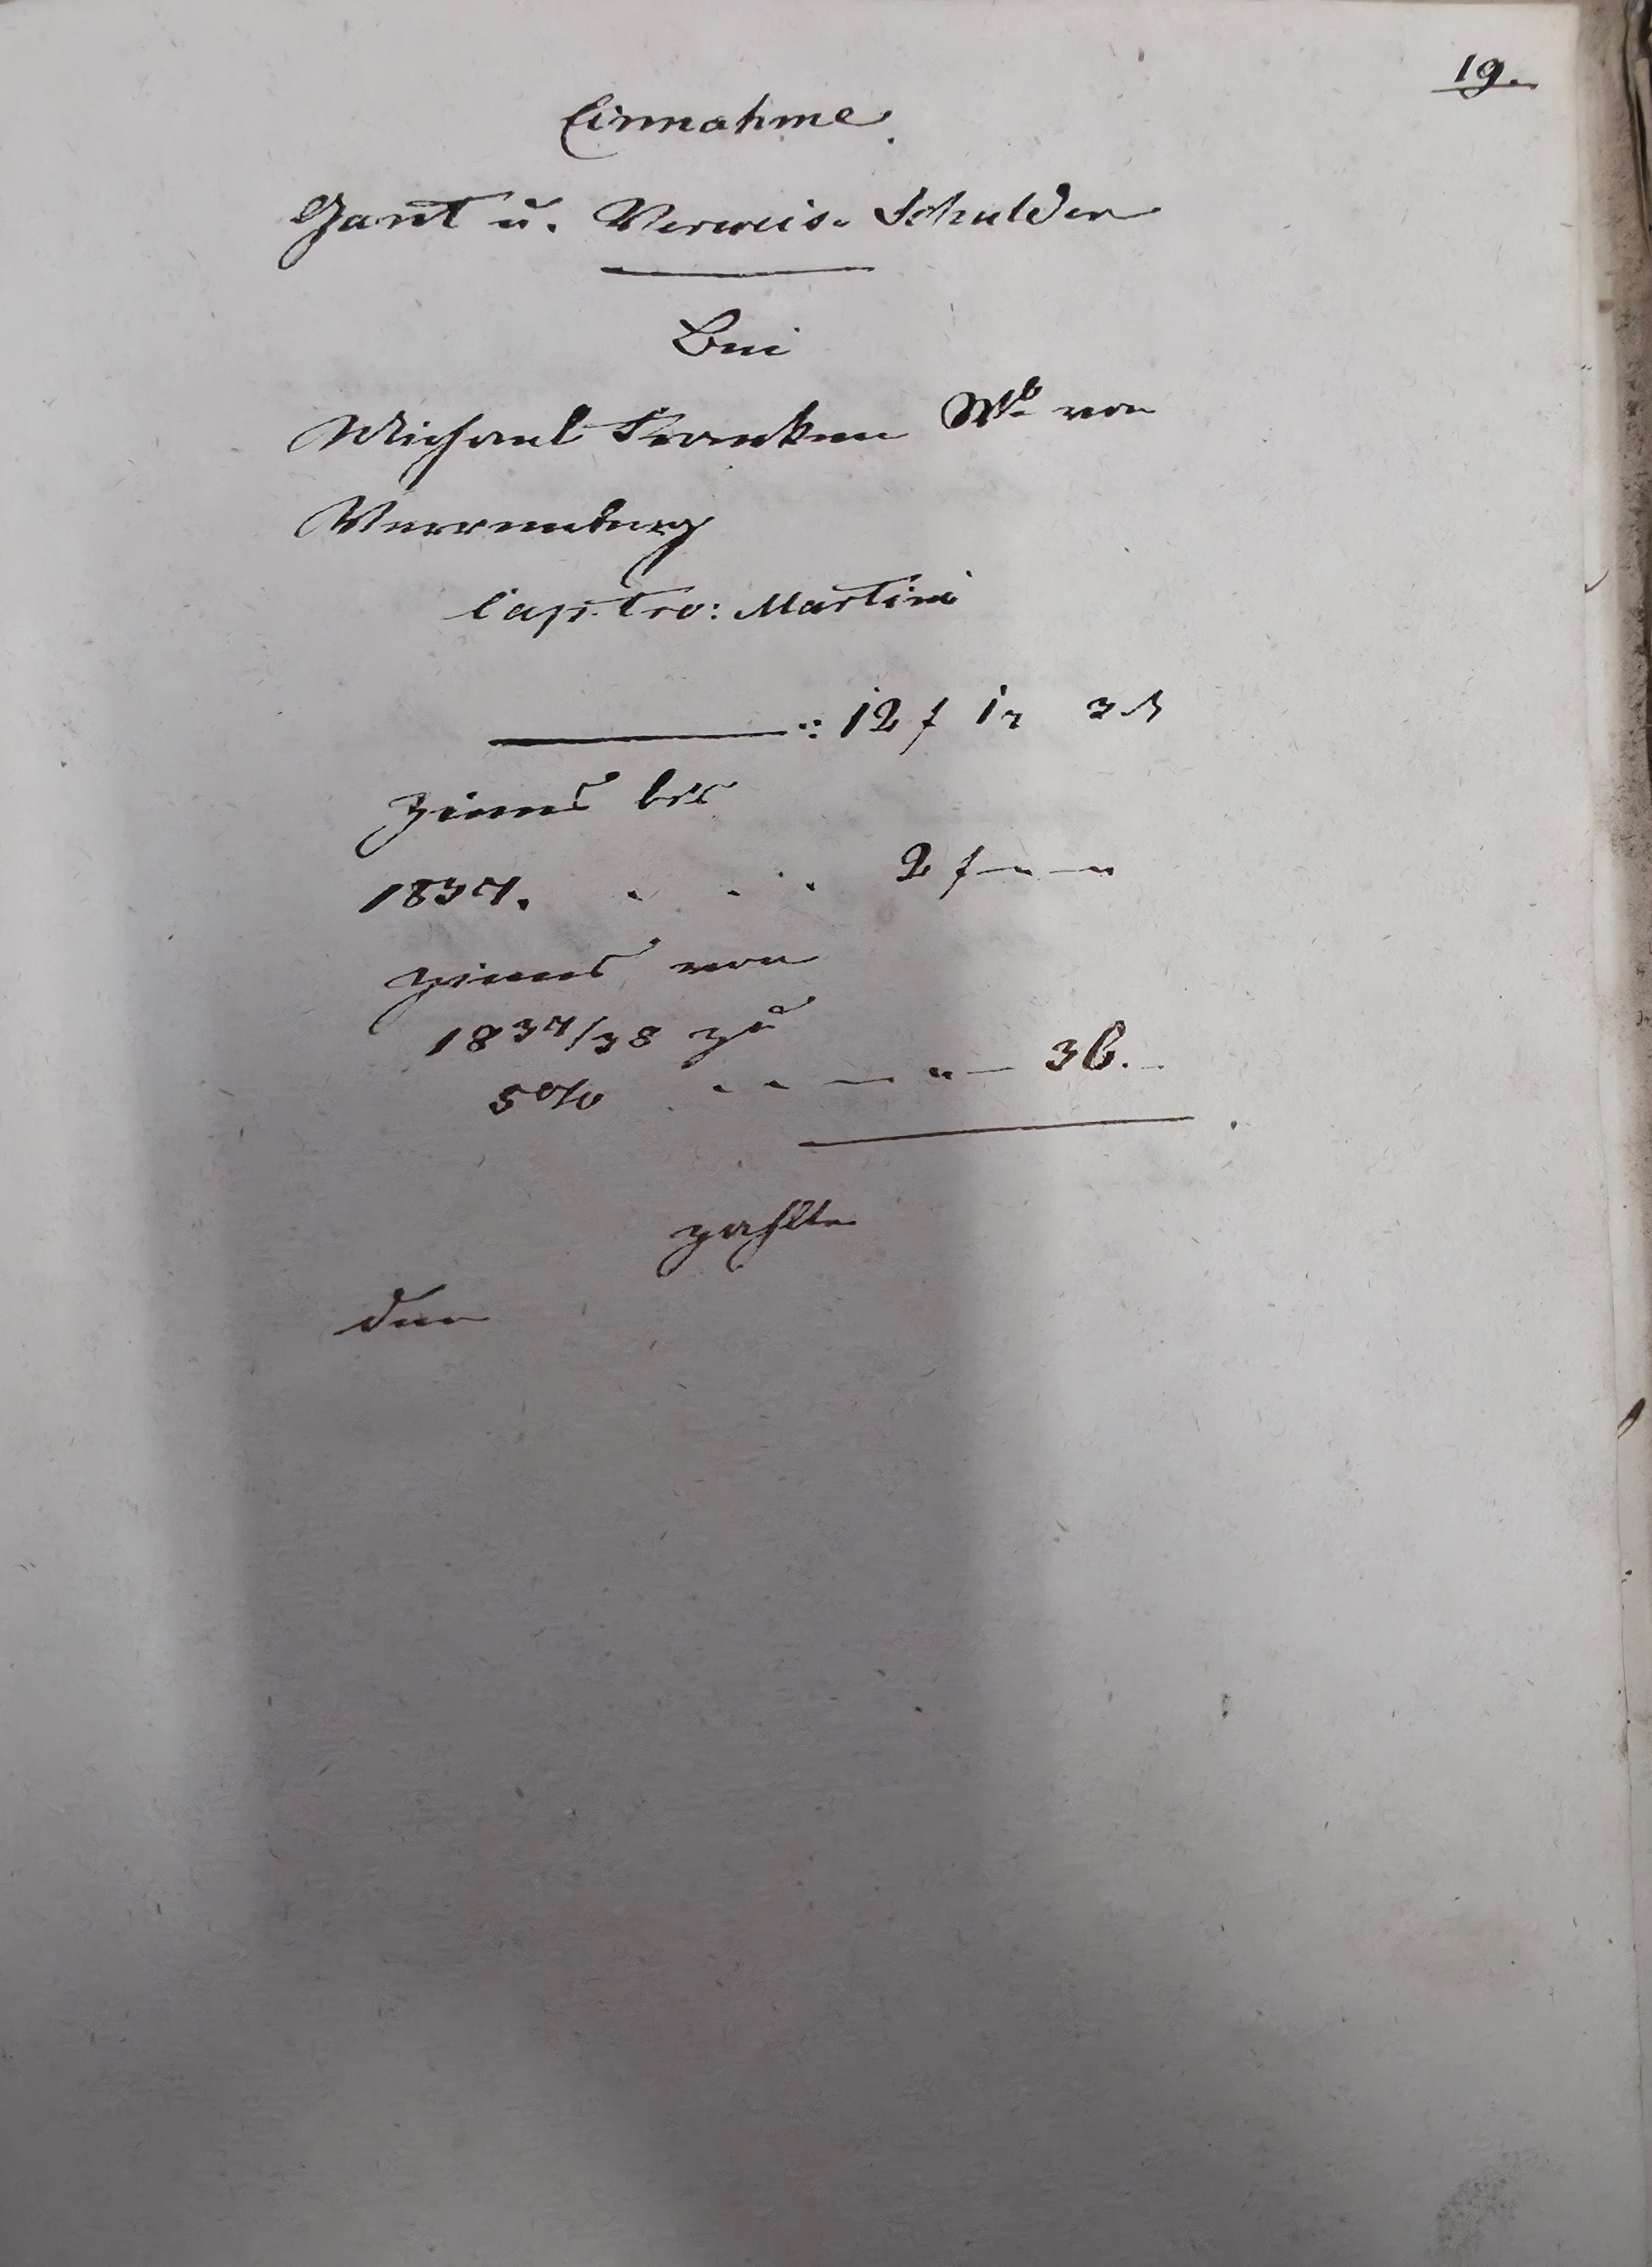 19.
Einnahme.
Gant u. Verweis. Schulden
Bei
Michael Franken Wb von
Werrenburg
Cap. tro: Martini
12 f 1 x 3 d
Zinns bis
1837. . . . 2 f — " — "
Zinns von
1837/38 zu
5 % . . — " — 36. —
zahlte
den